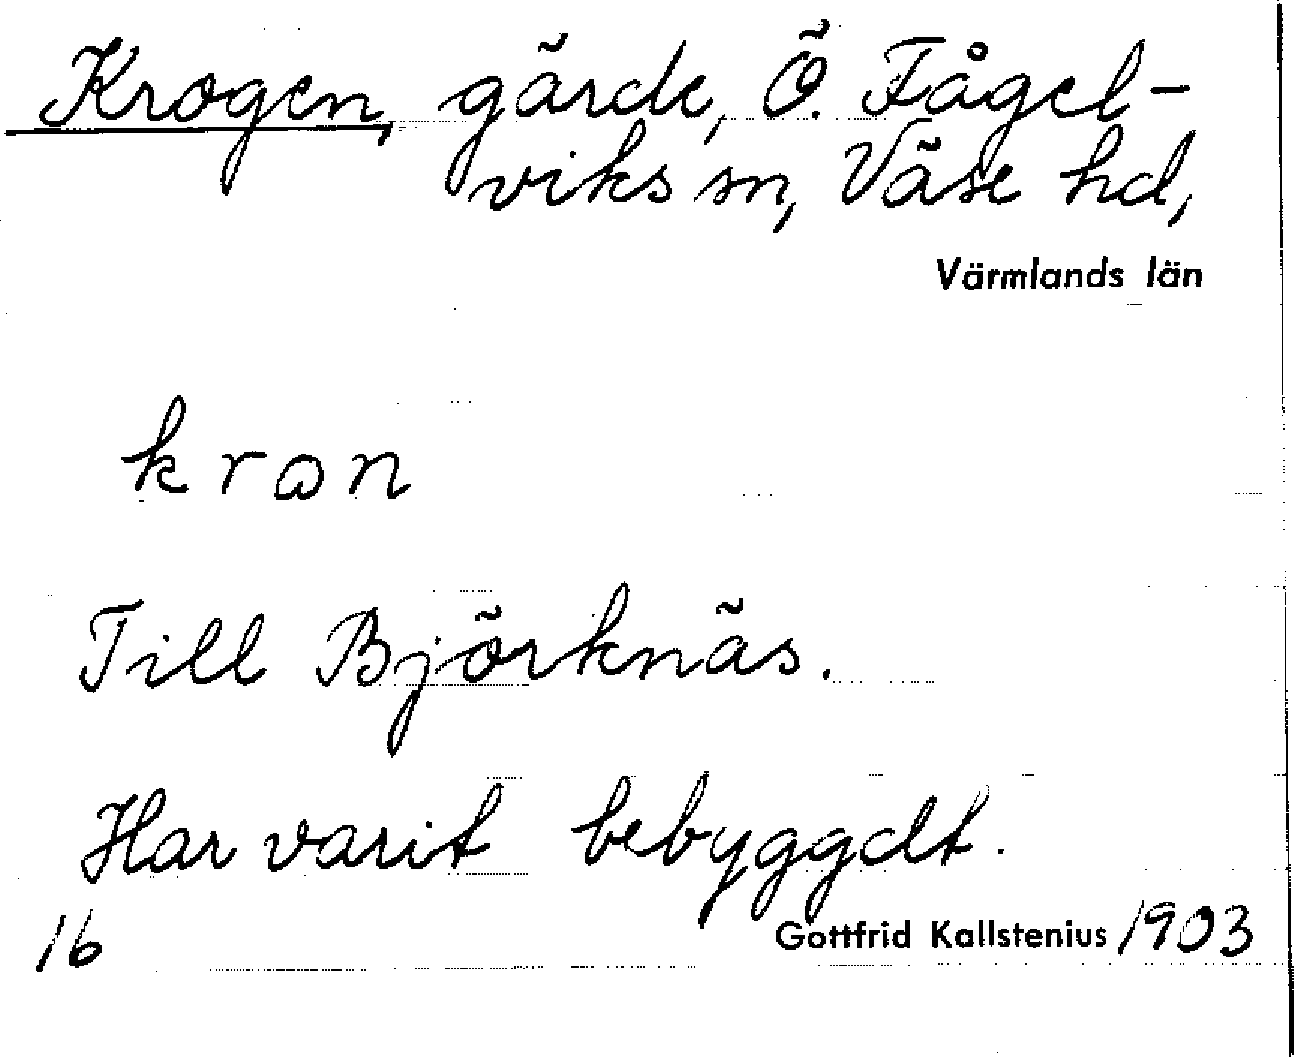 Krogen, gärde, Ö. Fågel-
viks sn, Väse hd,
Värmlands län
kron
Till Björknäs.
Har varit bebyggdt.
16 Gottfrid Kallstenius 1903